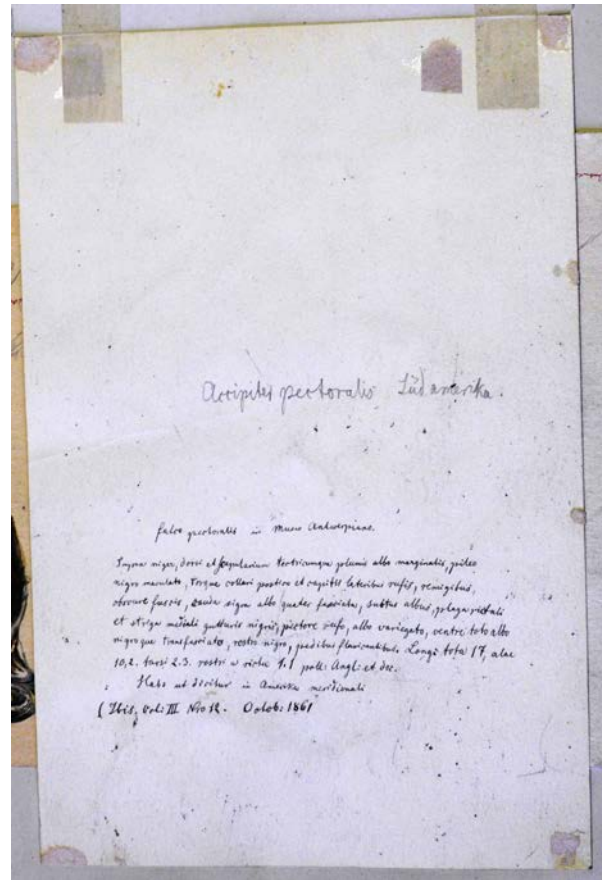 Accipiter pectoralis Südamerika.
falco pectoralis in Museo Antwerpiano.
Supra niger, dorsi et scapularium tectricumque plumis albo marginatis, pileo
nigro maculato, torque collari postico et capitis lateribus rufis, remigibus,
obscure fuscis, cauda nigra albo quater fasciata, subtus albus, plaga rictali
et striga mediali gutturis nigris, pectore rufo, albo variegato, ventre toto albo
nigroque transfasciato, rostro nigro, pedibus flavicantibus. Longi: tota 17, alae
10,2. tarsi 2.3. rostri a rictu 1.1 poll: Angl: et dec.
Hab: ut dicitur in America meridionali
(Ibis, Vol: III Nro 12. Octob: 1861